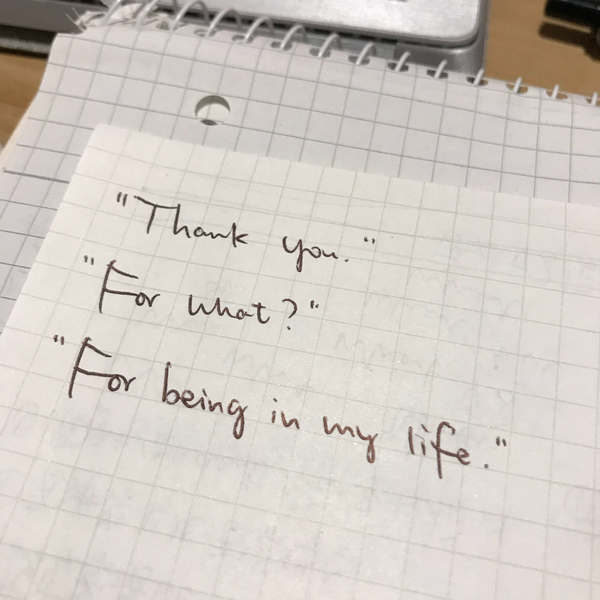 "Thank you."
"For what?"
"For being in my life."